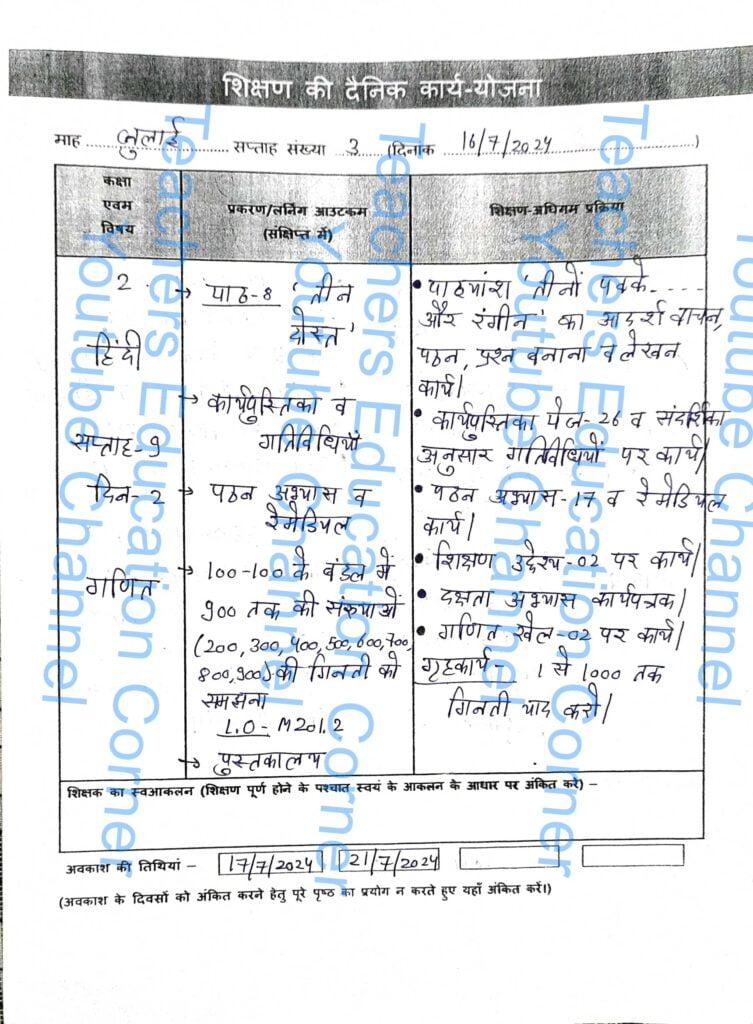 शिक्षण की दैनिक कार्य-योजना
माह जुलाई सप्ताह संख्या 3 (दिनाक 16/7/2024)
कक्षा
एवम
विषय
प्रकरण/लर्निंग आउटकम
(संक्षिप्त में)
शिक्षण-अधिगम प्रक्रिया
2
हिंदी
सप्ताह-9
दिन-2
गणित
→ पाठ-8 'तीन
दोस्त'
→ कार्यपुस्तिका व
गतिविधियाँ
→ पठन अभ्यास व
रेमेडियल
→ 100-100 के बंडल में
900 तक की संख्याओं
(200, 300, 400, 500, 600, 700,
800, 900) की गिनती को
समझना
L.O- M201.2
→ पुस्तकालय
• पाठ्यांश 'तीनों पक्के ----
और रंगीन' का आदर्श वाचन,
पठन, प्रश्न बनाना व लेखन
कार्य।
• कार्यपुस्तिका पेज-26 व संदर्शिका
अनुसार गतिविधियों पर कार्य।
• पठन अभ्यास-17 व रेमेडियल
कार्य।
• शिक्षण उद्देश्य-02 पर कार्य।
• दक्षता अभ्यास कार्यपत्रक।
• गणित खेल-02 पर कार्य।
गृहकार्य- 1 से 1000 तक
गिनती याद करो।
शिक्षक का स्वआकलन (शिक्षण पूर्ण होने के पश्चात स्वयं के आकलन के आधार पर अंकित करें) –
अवकाश की तिथियां – 17/7/2024 21/7/2024
(अवकाश के दिवसों को अंकित करने हेतु पूरे पृष्ठ का प्रयोग न करते हुए यहाँ अंकित करें।)
Teachers Education Corner
Youtube Channel
Teachers Education Corner
Youtube Channel
Teachers Education Corner
Youtube Channel